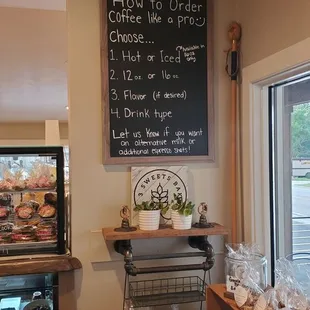 How to Order
Coffee like a pro
Choose...
1. Hot or Iced
2. 12oz or 16oz
3. Flavor (if desired)
4. Drink type
Let us know if you want
an alternative milk
or additional espresso shots!
3 SWEETS BA